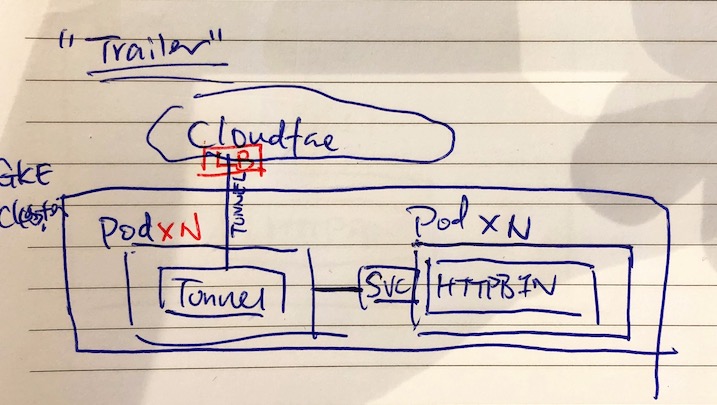 "Trailer"
Cloudfae
LB
TUNNEL
GKE
Cluster
Pod XN
Pod XN
Tunnel
SVC
HTTPBIN